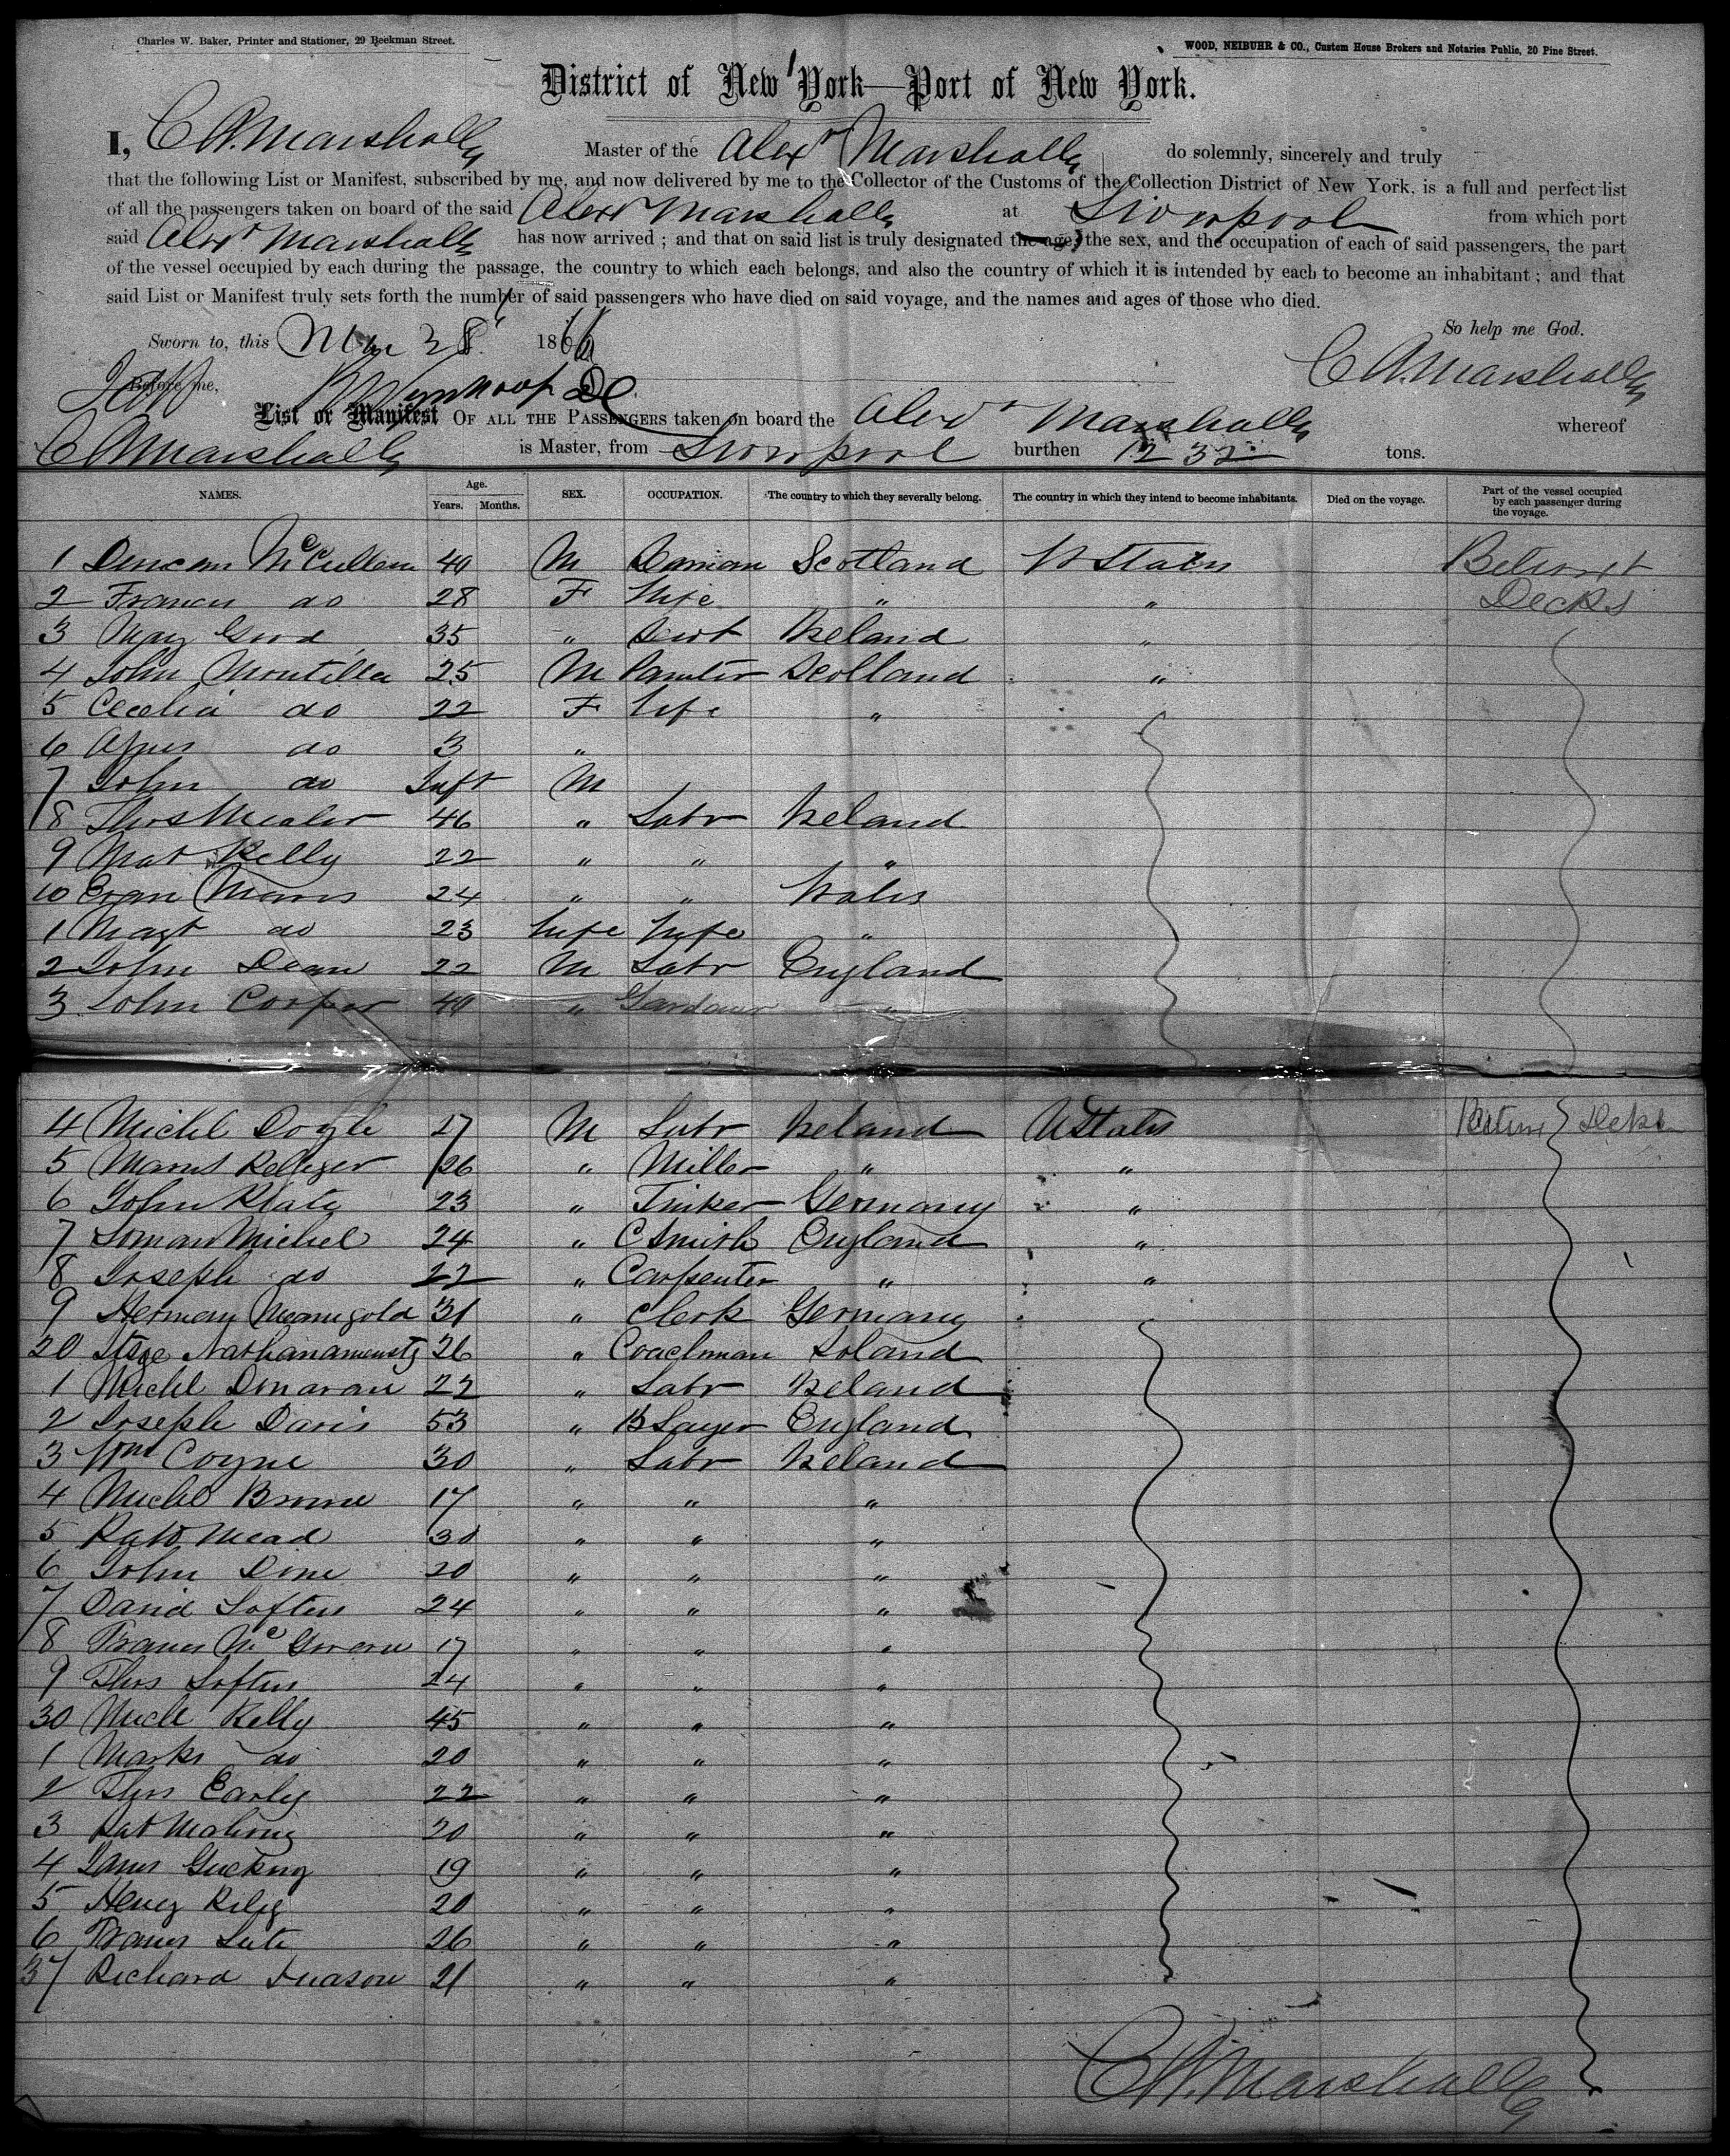 Charles W. Baker, Printer and Stationer, 29 Beekman Street.
WOOD, NEIBUHR & CO., Custom House Brokers and Notaries Public, 20 Pine Street.
District of New York—Port of New York.
I, C A. Marshall Master of the Alexr Marshall do solemnly, sincerely and truly
that the following List or Manifest, subscribed by me, and now delivered by me to the Collector of the Customs of the Collection District of New York, is a full and perfect list
of all the passengers taken on board of the said Alexr Marshall at Liverpool from which port
said Alexr Marshall has now arrived; and that on said list is truly designated the age, the sex, and the occupation of each of said passengers, the part
of the vessel occupied by each during the passage, the country to which each belongs, and also the country of which it is intended by each to become an inhabitant; and that
said List or Manifest truly sets forth the number of said passengers who have died on said voyage, and the names and ages of those who died.
So help me God.
Sworn to, this 28 1866
C A. Marshall
Before me,
List or Manifest OF ALL THE PASSENGERS taken on board the Alexr Marshall whereof
C A Marshall is Master, from Liverpool burthen 1232 tons.
NAMES. Age. Years. Months. SEX. OCCUPATION. The country to which they severally belong. The country in which they intend to become inhabitants. Died on the voyage. Part of the vessel occupied by each passenger during the voyage.
1 Duncan McCullum 40 M Scotland U States Betwixt
2 Frances do 28 F Wife " " Decks
3 35 " Servt Ireland "
4 John 25 M Painter Scotland "
5 Cecelia do 22 F Wife "
6 Agnes do 3 "
7 John do Inft M
8 Thos 46 " Labr Ireland
9 Mat Kelly 22 " " "
10 Evan Morris 24 " " Wales
1 Margt do 23 Wife Wife "
2 John Dean 22 M Labr England
3 John Cooper 40 " Gardener "
4 Michl Doyle 27 M Labr Ireland U States Between Decks
5 26 " Miller " "
6 John 23 " Tinker Germany "
7 Michel 24 " C Smith England "
8 Joseph do 22 " Carpenter " "
9 Herman Manigold 31 " Clerk Germany
20 26 " Coachman Poland
1 Michl Donavan 22 " Labr Ireland
2 Joseph Davis 53 " B Layer England
3 Wm Coyne 30 " Labr Ireland
4 Michl Browne 17 " " "
5 Patk Mead 30 " " "
6 John Dine 20 " " "
7 David Loftus 24 " " "
8 Frances McGovern 17 " " "
9 Thos Loftus 24 " " "
30 Michl Kelly 45 " " "
1 Marks do 20 " " "
2 Thos Earley 22 " " "
3 Pat Mahony 20 " " "
4 James 19 " " "
5 Henry Riley 20 " " "
6 Frances 26 " " "
37 Richard 21 " " "
C A. Marshall